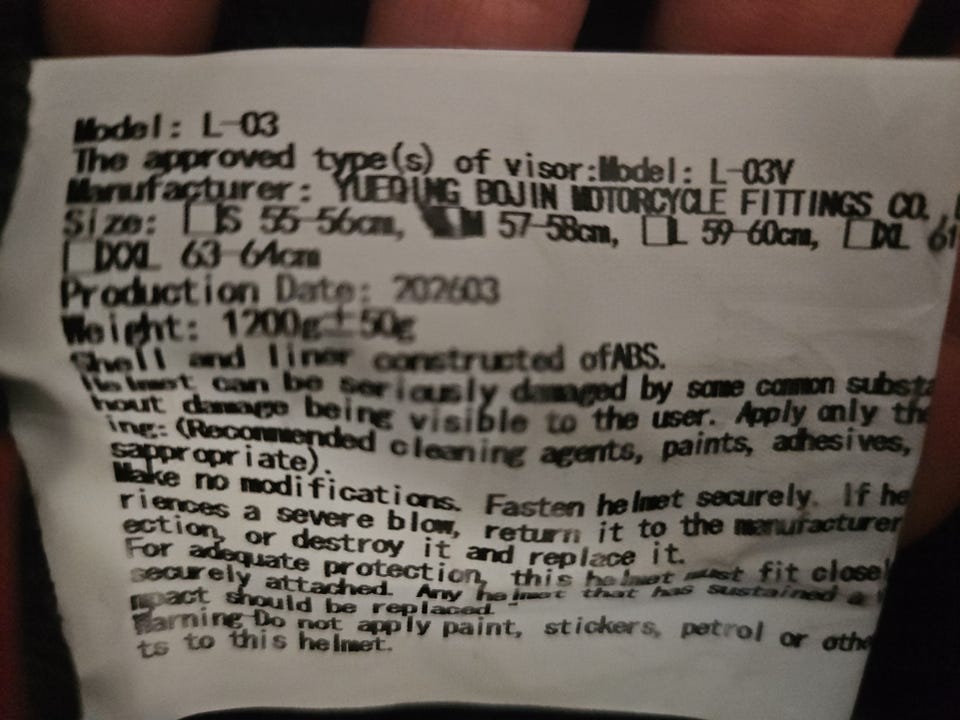 Model: L-03
The approved type(s) of visor:Model: L-03V
Manufacturer: YUEQING BOJIN MOTORCYCLE FITTINGS CO.,
Size: □S 55-56cm, ■M 57-58cm, □L 59-60cm, □XL 61
□XXL 63-64cm
Production Date: 202603
Weight: 1200g±50g
Shell and liner constructed ofABS.
Helmet can be seriously damaged by some common substa
hout damage being visible to the user. Apply only the
ing: (Recommended cleaning agents, paints, adhesives,
sappropriate).
Make no modifications. Fasten helmet securely. If he
riences a severe blow, return it to the manufacturer
ection, or destroy it and replace it.
For adequate protection, this helmet must fit closel
securely attached. Any helmet that has sustained a
mpact should be replaced.
Warning-Do not apply paint, stickers, petrol or othe
ts to this helmet.